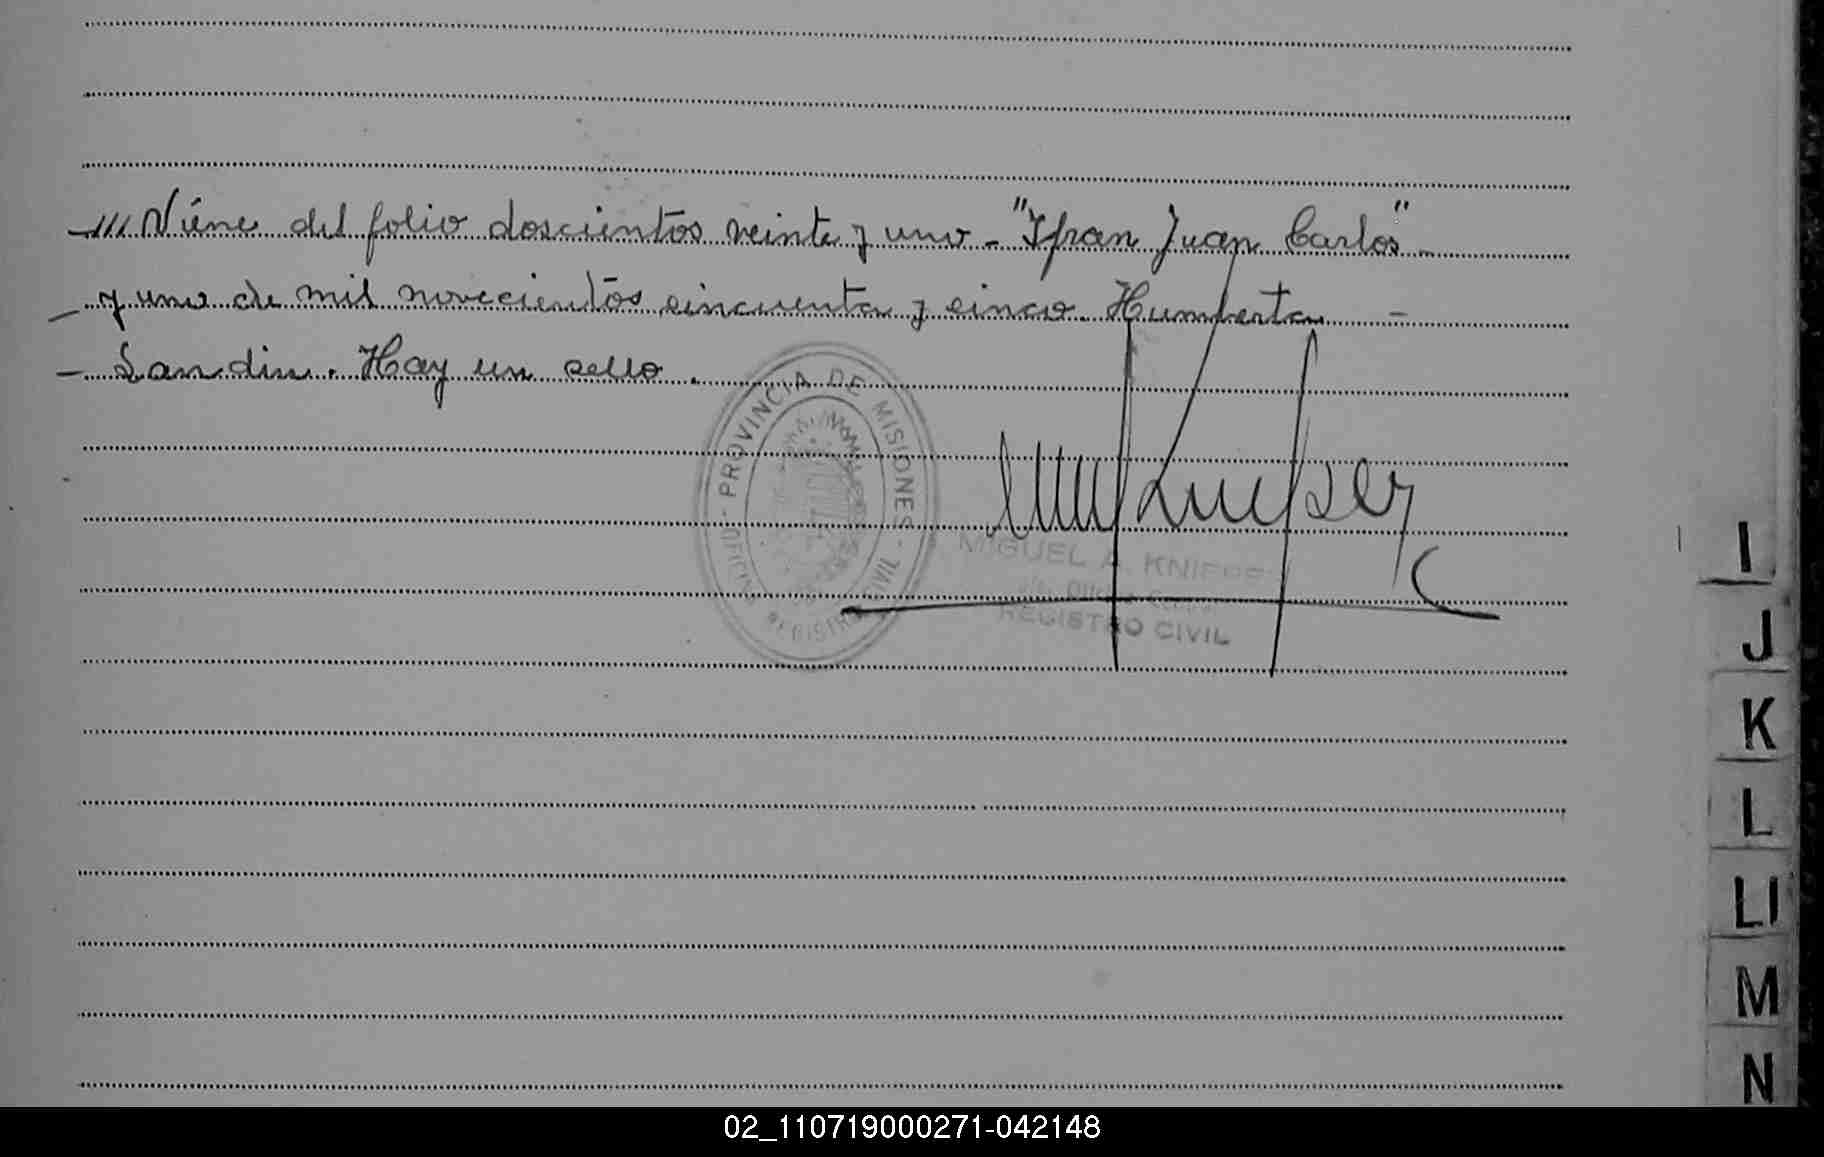 -/// Viene del folio doscientos veinte y uno - "Ifran Juan Carlos" -
- y uno de mil novecientos cincuenta y cinco. Humberta -
- Landin. Hay un sello.
PROVINCIA DE MISIONES
REGISTRO CIVIL
MIGUEL A. KNIEPER
REGISTRO CIVIL
I
J
K
L
Ll
M
N
02_110719000271-042148